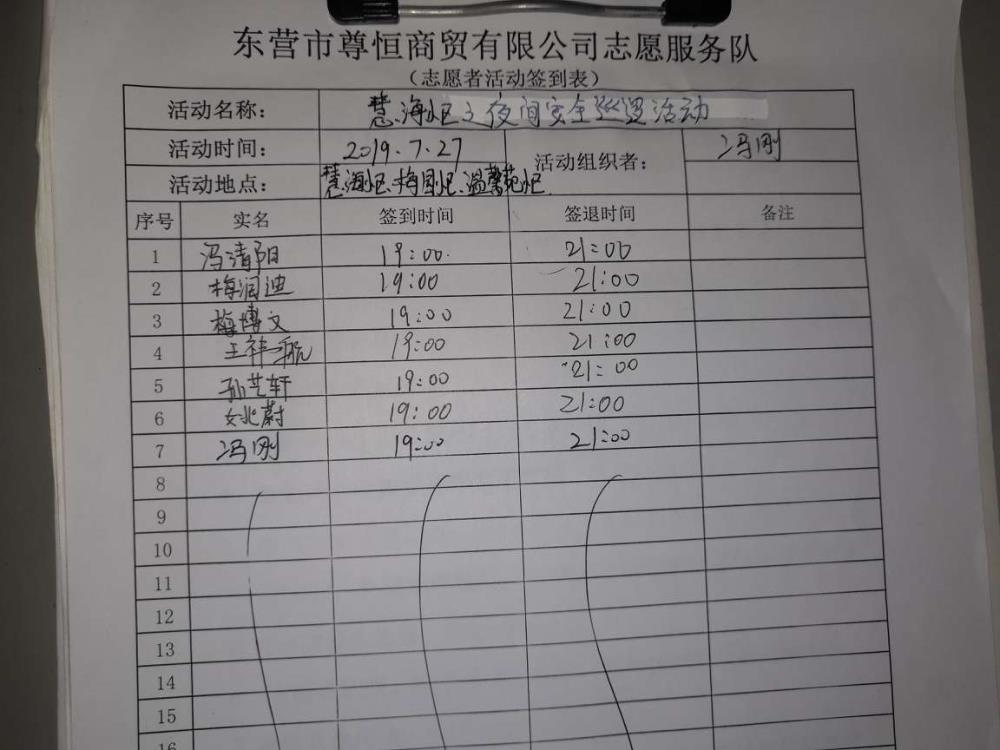 东营市尊恒商贸有限公司志愿服务队
（志愿者活动签到表）
活动名称： 慧海小区夜间安全巡逻活动
活动时间： 2019.7.27 活动组织者： 冯刚
活动地点： 慧海小区、梅园小区、温馨苑小区
序号 实名 签到时间 签退时间 备注
1 冯清阳 19:00. 21:00
2 梅润迪 19:00 21:00
3 梅博文 19:00 21:00
4 王祥航 19:00 21:00
5 孙艺轩 19:00 21:00
6 姚蔚 19:00 21:00
7 冯刚 19:00 21:00
8
9
10
11
12
13
14
15
16